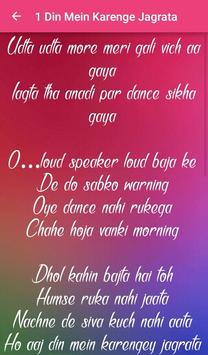 1 Din Mein Karenge Jagrata
Udta udta more meri gali vich aa
gaya
lagta tha anadi par dance sikha
gaya
O...loud speaker loud baja ke
De do sabko warning
Oye dance nahi rukega
Chahe hoja vanki morning
Dhol kahin bajta hai toh
Humse ruka nahi jaata
Nachne de siva kuch nahi aata
Ho aaj din mein karengey jagrata